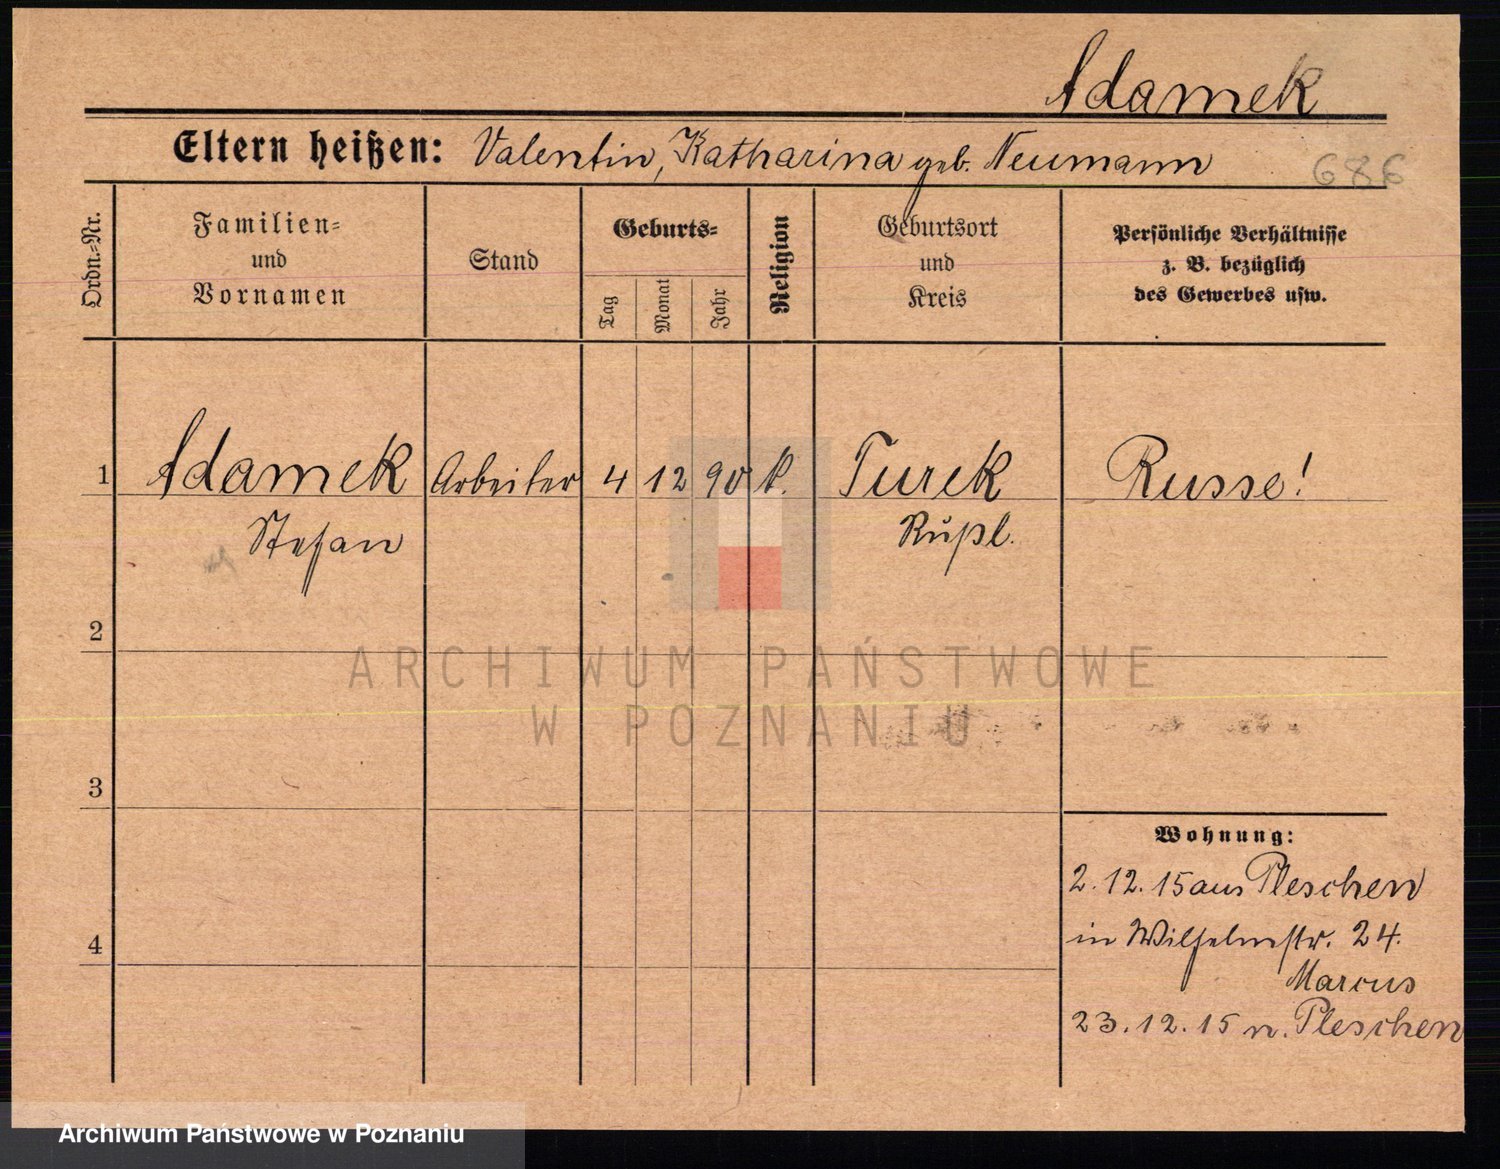 Adamek
Eltern heißen: Valentin, Katharina geb. Neumann
686
Ordn.=Nr.
Familien=
und
Vornamen
Stand
Geburts=
Tag
Monat
Jahr
Religion
Geburtsort
und
Kreis
Persönliche Verhältnisse
z. B. bezüglich
des Gewerbes usw.
1 Adamek Arbeiter 4 12 90 k. Turek Russe!
Stefan Rußl.
2
ARCHIWUM PAŃSTWOWE
W POZNANIU
3
Wohnung:
2.12.15 aus Pleschen
4 in Wilhelmstr. 24.
Marcus
23.12.15 n. Pleschen
Archiwum Państwowe w Poznaniu